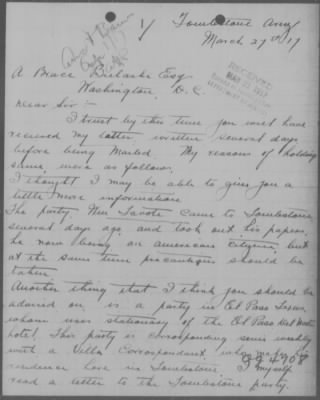 1/ Tombstone Ariz
March 27th 17
RECEIVED
A Bruce Bielaski Esq
Washington D. C.
Dear Sir:-
I trust by this time you will have
received my letter written several days
before being Mailed. My reasons of holding
same, were as follows;
I thought I may be able to give you a
little more information
The party, Wm came to Tombstone,
several days ago, and took out his papers,
he now being an american citizen, but
at the same time precautions should be
taken.
Another thing that I think you should be
advised on is a party in El Paso Texas,
whom uses stationary of the El Paso
hotel. This party is corresponding semi weekly
with a Villa Correspondent, who
residence here in Tombstone, I myself
read a letter to the Tombstone party.